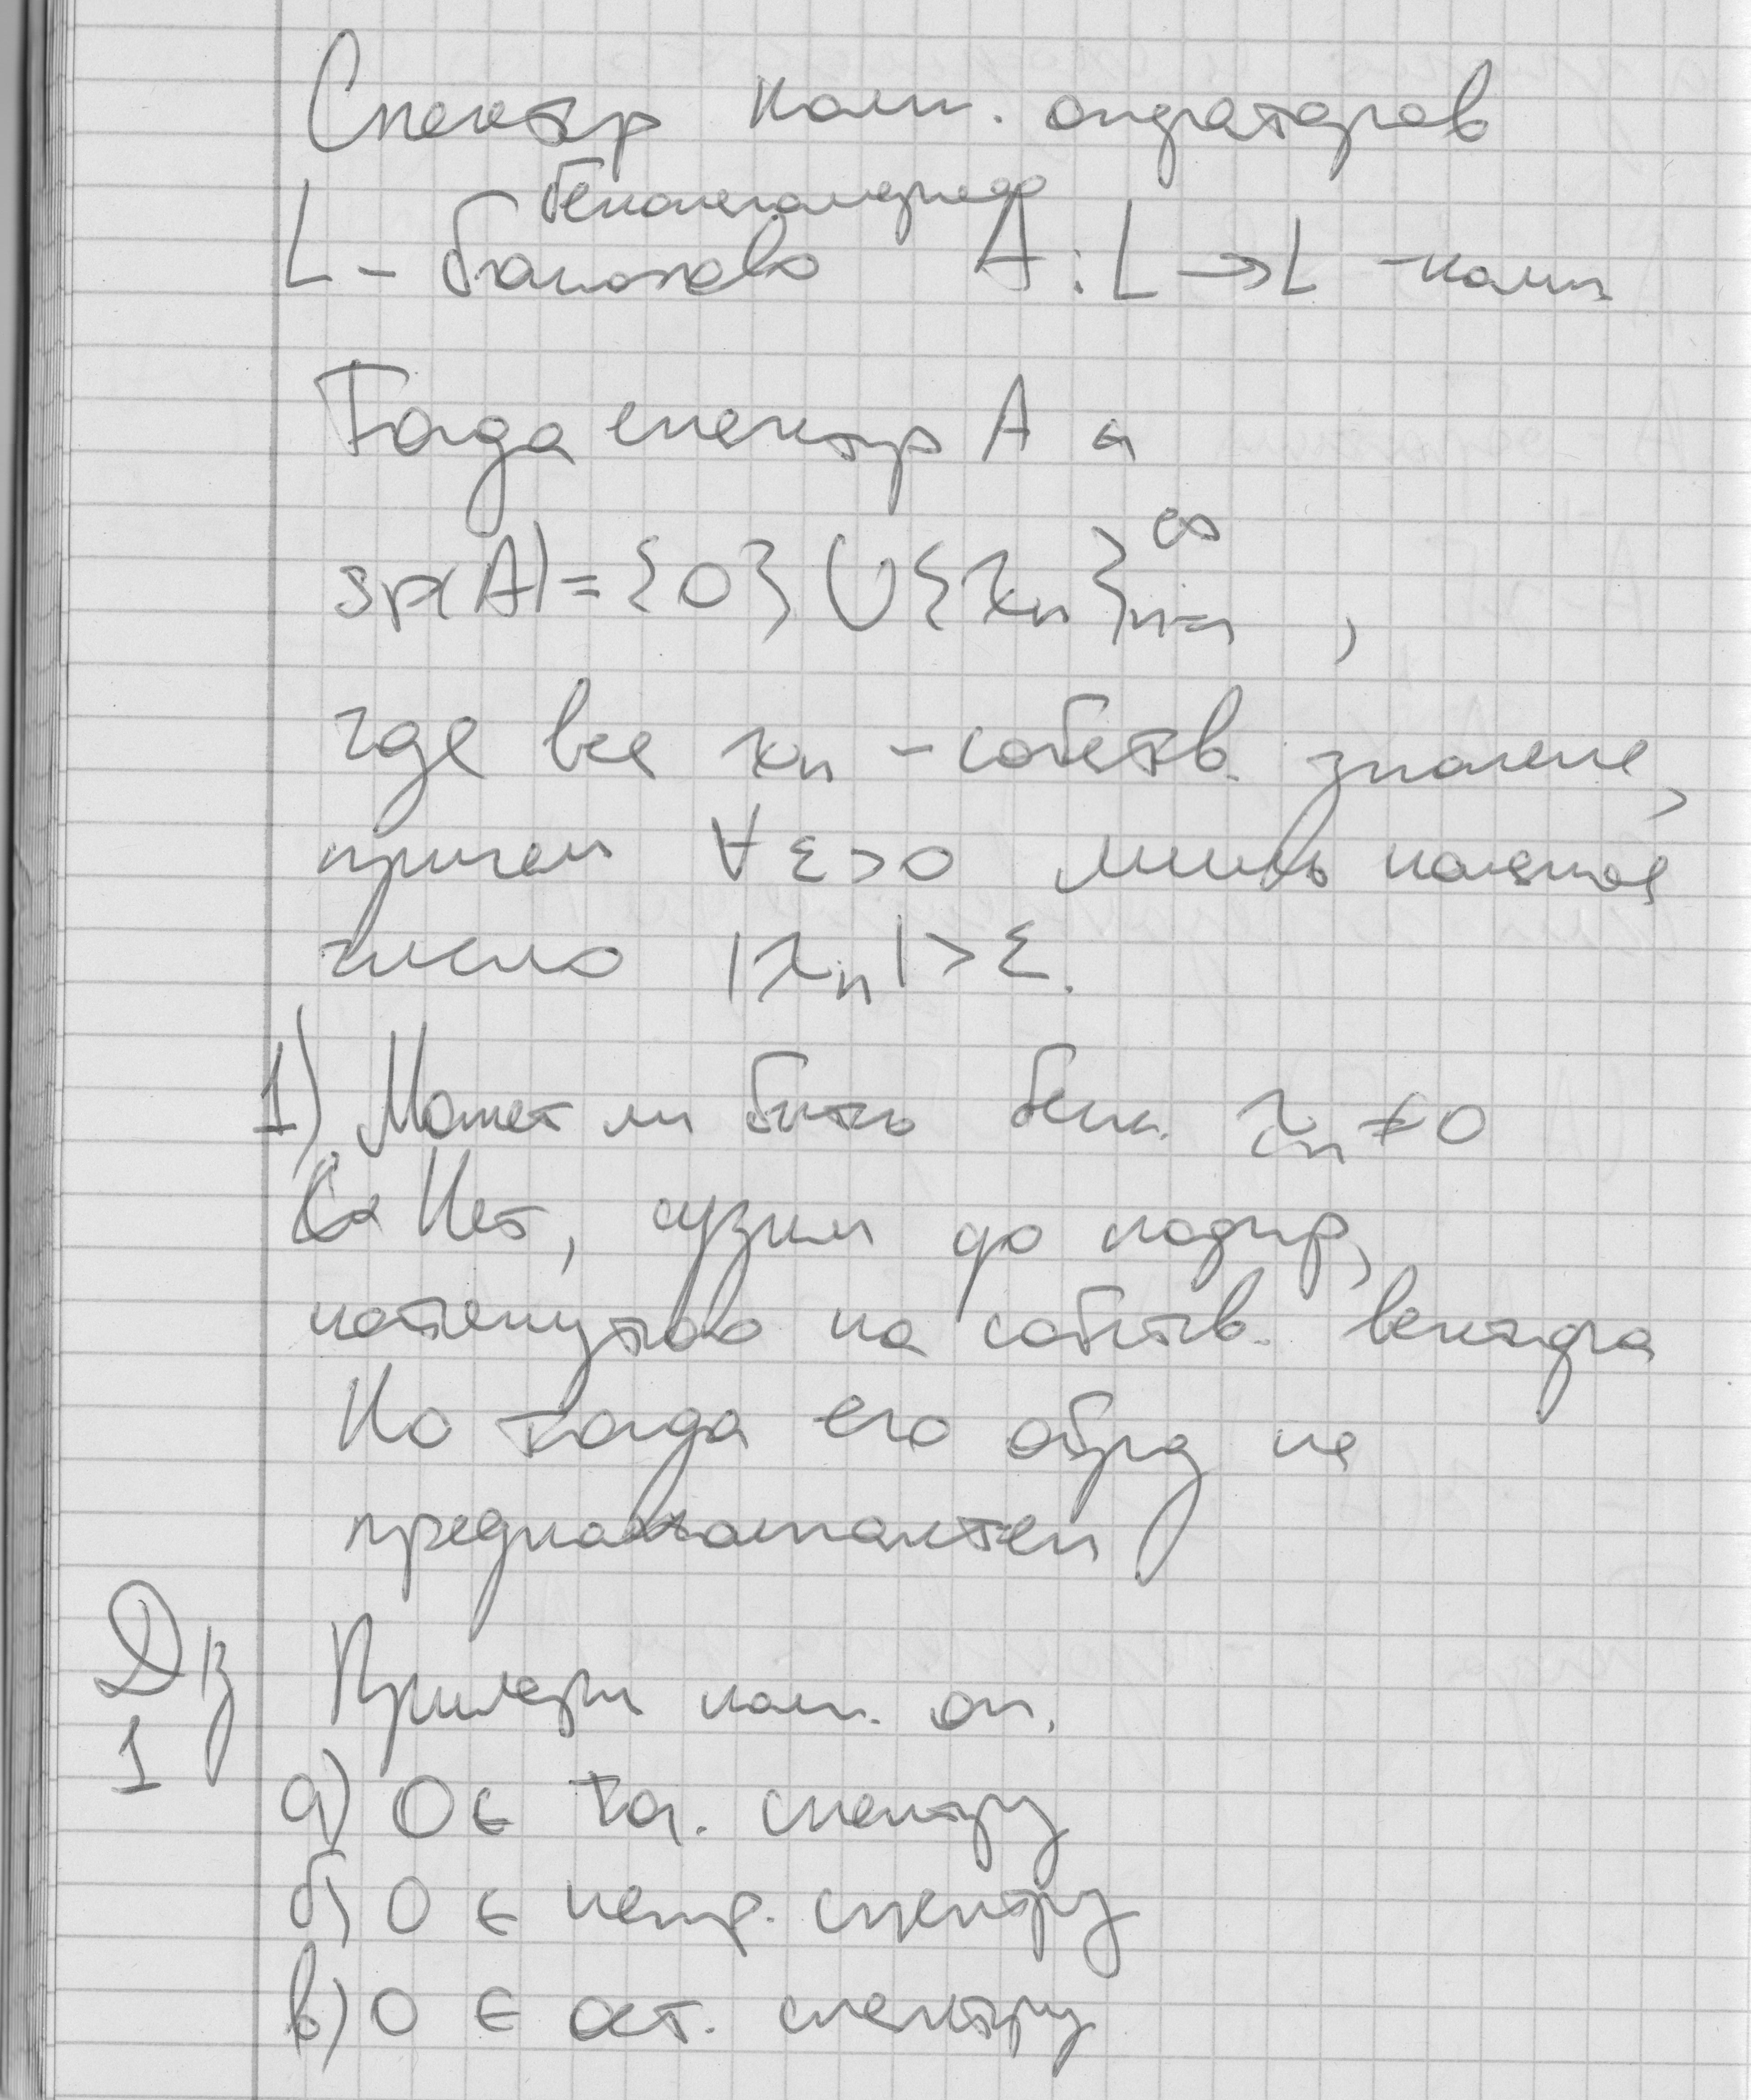 Спектр комп. операторов
бесконечномерное
L - банахово A : L → L - комп
Тогда спектр A
sp(A) = {0} ∪ {λn}∞n=1 ,
где все λn - собств. значение,
причем ∀ ε > 0 лишь конечное
число |λn| > ε.
1) Может ли быть беск. λn ≠ 0
Нет, сузим до подпр,
натянутого на собств. вектора
Но тогда его образ не
предкомпактен
Дз 1
Примеры комп. оп.
а) 0 ∈ точ. спектру
б) 0 ∈ непр. спектру
в) 0 ∈ ост. спектру